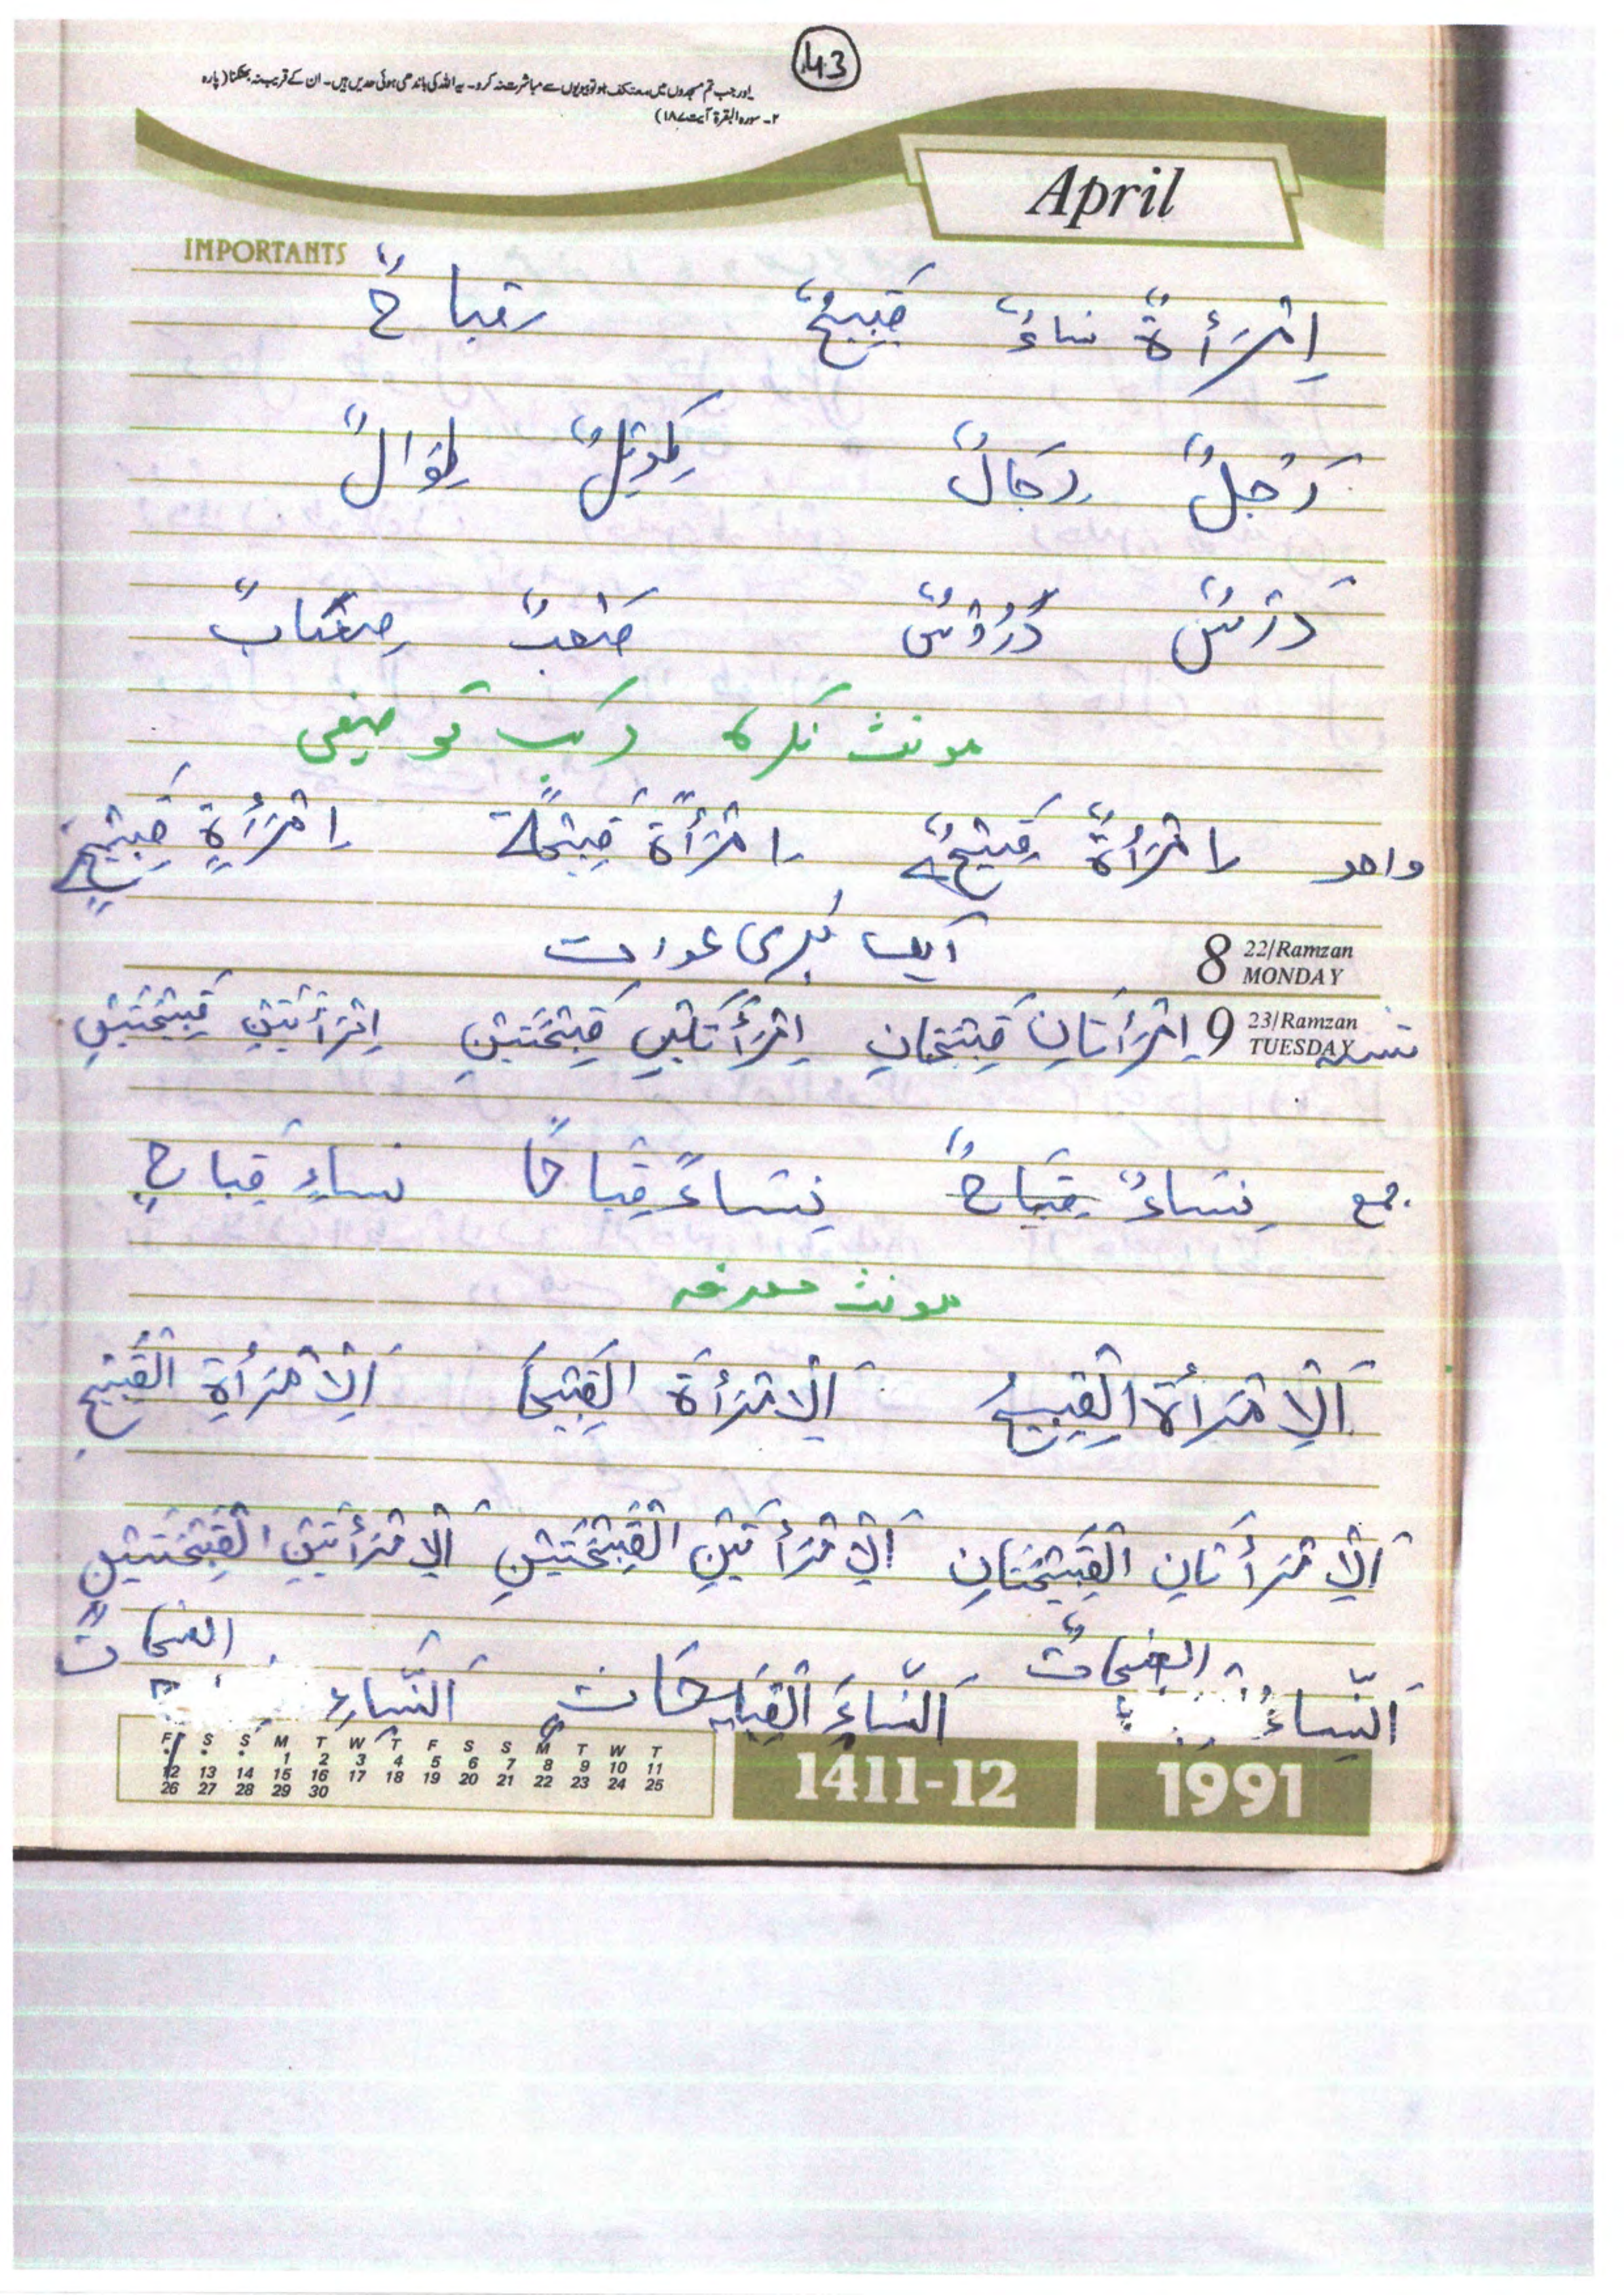 43
اور جب تم مسجدوں میں معتکف ہو تو بیویوں سے مباشرت نہ کرو۔ یہ اللہ کی باندھی ہوئی حدیں ہیں۔ ان کے قریب نہ بھٹکنا (پارہ
۲۔ سورہ البقرۃ آیت ۱۸۷)
April
IMPORTANTS
اِمْرَأَةٌ نساءٌ قَبِيحٌ قباحٌ
رَجُلٌ رِجَالٌ طَوِيْلٌ طِوَالٌ
دَرْسٌ دُرُوْسٌ صَعْبٌ صِعَابٌ
مونث نکرہ کا مرکب توصیفی
واحد اِمْرَأَةٌ قَبِيْحَةٌ اِمْرَأَةً قَبِيْحَةً اِمْرَأَةٍ قَبِيْحَةٍ
ایک بُری عورت
8 22/Ramzan MONDAY
9 23/Ramzan TUESDAY
تثنیہ اِمْرَأَتَانِ قَبِيْحَتَانِ اِمْرَأَتَيْنِ قَبِيْحَتَيْنِ اِمْرَأَتَيْنِ قَبِيْحَتَيْنِ
جمع نِسَاءٌ قِبَاحٌ نِسَاءً قِبَاحًا نساءٍ قِباحٍ
مونث معرفہ
اَلْاِمْرَأَةُ الْقَبِيْحُ اَلْاِمْرَأَةَ الْقَبِيْحَا اَلْاِمْرَأَةِ الْقَبِيْحِ
اَلْاِمْرَأَتَانِ الْقَبِيْحَتَانِ اَلْاِمْرَأَتَيْنِ الْقَبِيْحَتَيْنِ اَلْاِمْرَأَتَيْنِ الْقَبِيْحَتَيْنِ
اَلنِّسَاءُ اَلنِّسَاءَ اَلنِّسَاءِ
F S S M T W T F S S M T W T
1 2 3 4 5 6 7 8 9 10 11
12 13 14 15 16 17 18 19 20 21 22 23 24 25
26 27 28 29 30
1411-12
1991